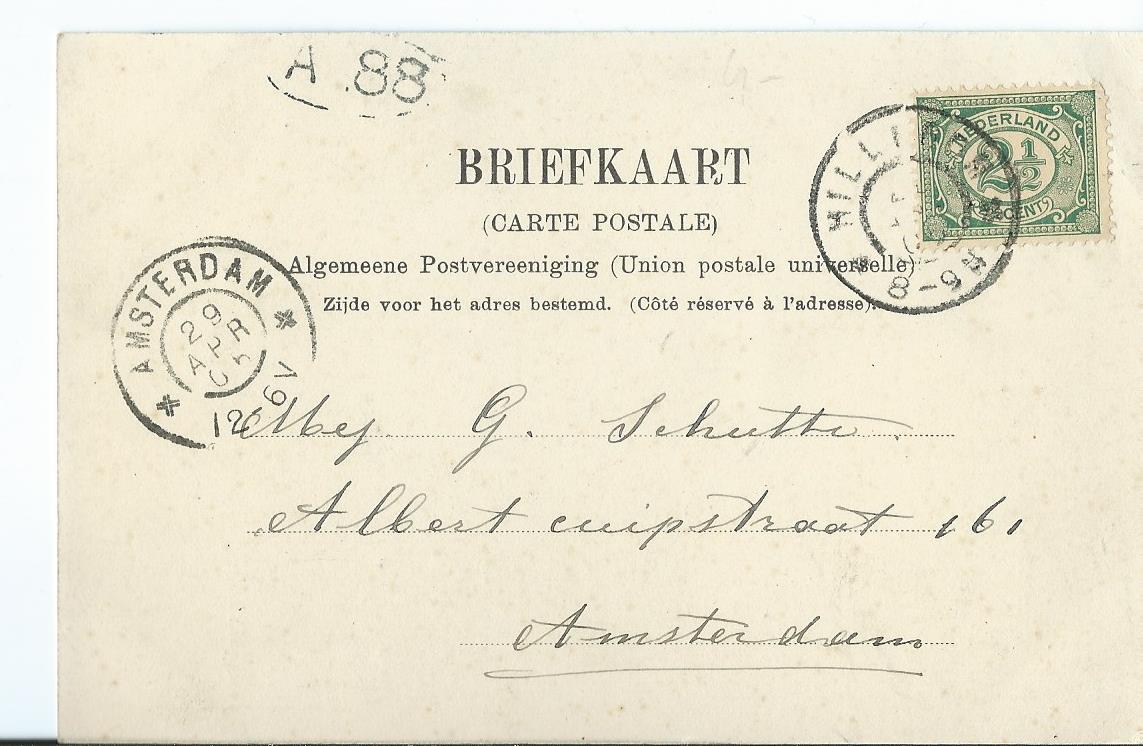 A 88
BRIEFKAART
NEDERLAND
2 1/2
CENT
HILLE
8-9
(CARTE POSTALE)
Algemeene Postvereeniging (Union postale universelle)
Zijde voor het adres bestemd. (Côté réservé à l'adresse).
AMSTERDAM
29
APR
12 6V
Mej. G. Schutte.
Albert cuipstraat 161
Amsterdam